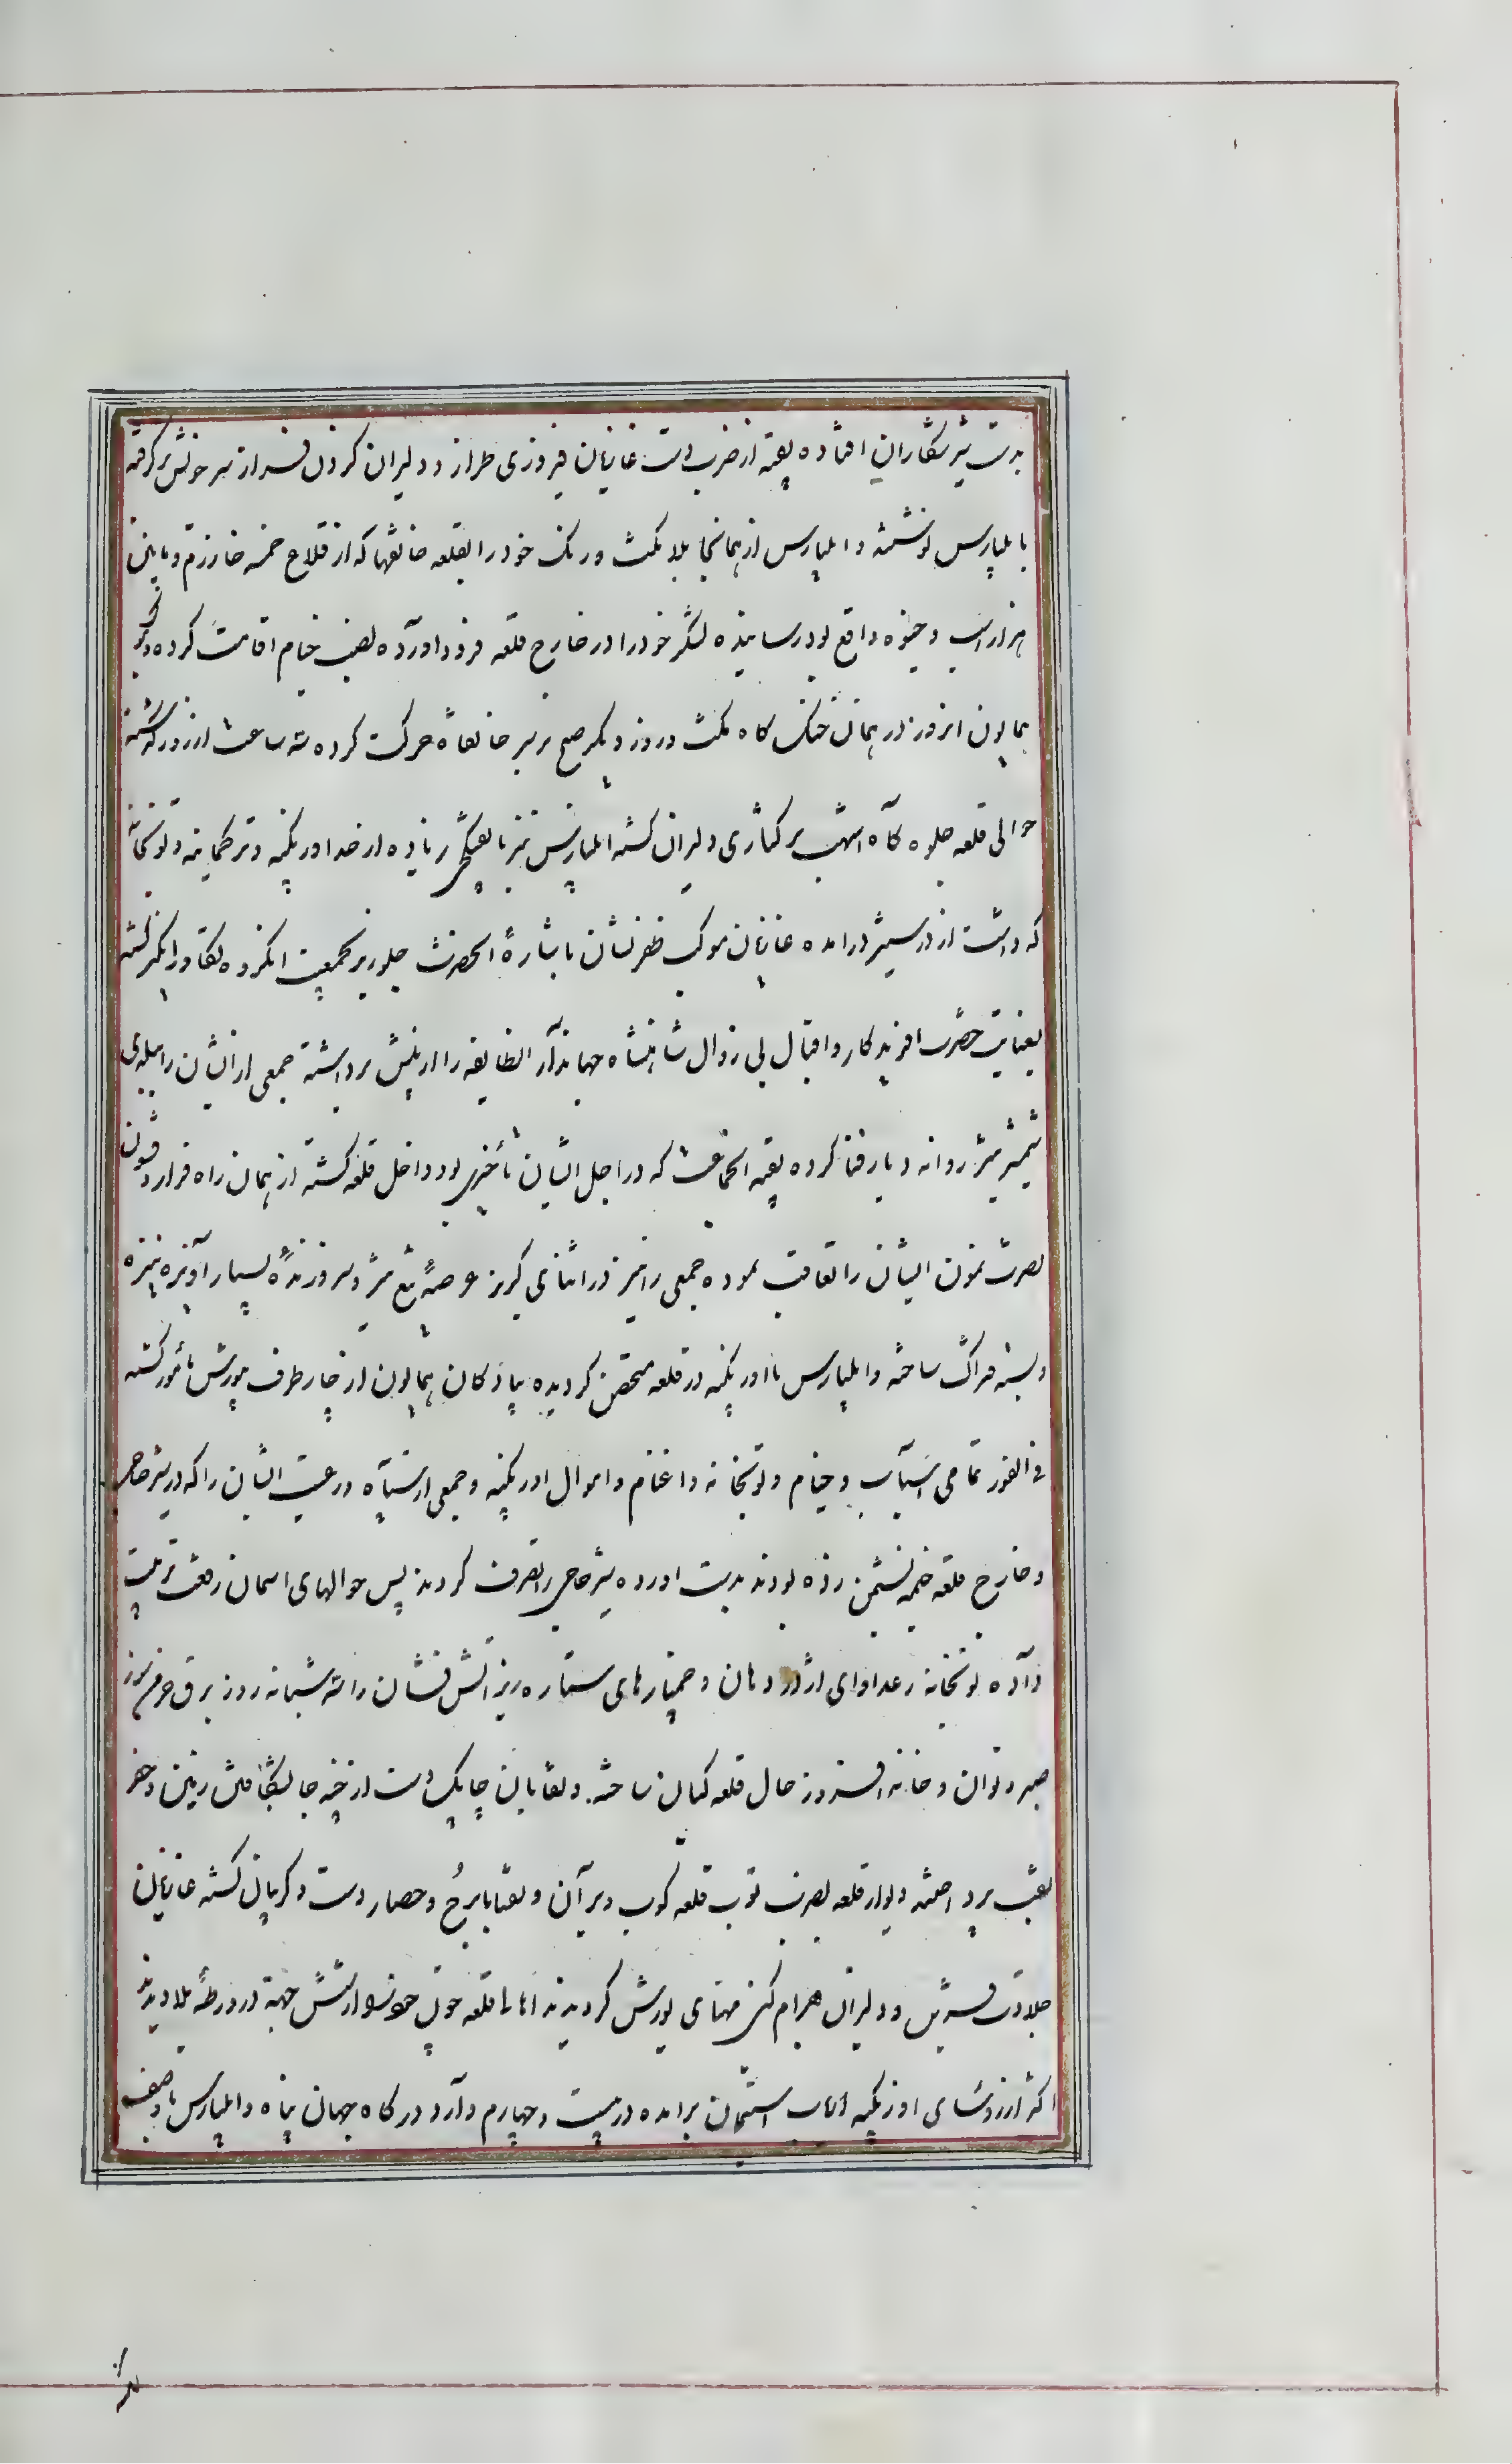 بدست شیر شکاران افتاده بقیه از ضرب دست غازیان فیروزی طراز و دلیران کردن فراز سر خویش کرفته
بایلبارس نوشتند و ایلبارس از همانجا بلا مکث و رنک خود را بقلعه خانقها که از قلاع خمسه خوارزم و مابین
هزار اسب و خیوه واقع بود رسانیده لشکر خود را در خارج قلعه فرود آورده نصب خیام اقامت کرده
همایون انروز در همان جنک کاه مکث و روز دیکر صبح بر سر خانقاه حرکت کرده سه ساعت از روز کذشته
حوالی قلعه جلوه کاه اشهب سر کشاری دلیران کشته ایلبارس نیز با تفنکچی زیاده از حد اوزبکیه و ترکمانیه و توپخانه
که داشت از در ستیز درآمده غازیان موکب ظفر نشان باشارهٔ آنحضرت جلوریز بجمعیت انکروه شقاوت انکیز کشته
بعنایت حضرت آفریدکار و اقبال بی زوال شاهنشاه جهاندار انطایفه را از پیش برداشته جمعی از ایشان را ببلدی
شمشیر تیز روانه دیار فنا کرده بقیه انجماعت که در اجل ایشان تأخیری بود داخل قلعه کشته از همان راه فرار و قشون
نصرت نمون ایشان را تعاقب نموده جمعی را نیز در اثنای کریز عرصهٔ تیغ تیز و سر و زندهٔ بسیار آویزه نیزه
و بسته فتراک ساخته و ایلبارس با اوزبکیه در قلعه متحصن کردیده پیادکان همایون از چار طرف یورش مأمور کشته
فی الفور تمامی اسباب و خیام و توپخانه و اغنام و اموال اوزبکیه و جمعی از سپاه و رعیت ایشان را که در شیر حاجی
و خارج قلعه خیمه نشیمن زده بودند بدست اورده شیر حاجی را تصرف کردند پس حوالهای اسمان رفعت ترتیب
داده توپخانه رعد اوای اژدر دهان و خمپارهای ستاره ریز اتش فشان را سه شبانه روز برق خرمن سوز
صبر و توان و خانه افروز حال قلعه کیان ساخته و نقابان چابک دست از چند جا بشکافتن زمین و حفر
نقب پرداخته دیوار قلعه بضرب توپ قلعه کوب ویران و نقبها با برج و حصار دست و کریبان کشته غازیان
جلادت قرین و دلیران بهرام کین مهیای یورش کردیدند اهالی قلعه چون خود را از شش جهة در ورطهٔ بلا دیدند
اکثر از رؤسای اوزبکیه از باب استیمان برامده در بیست و چهارم وارد درکاه جهان پناه و ایلبارس با وصف